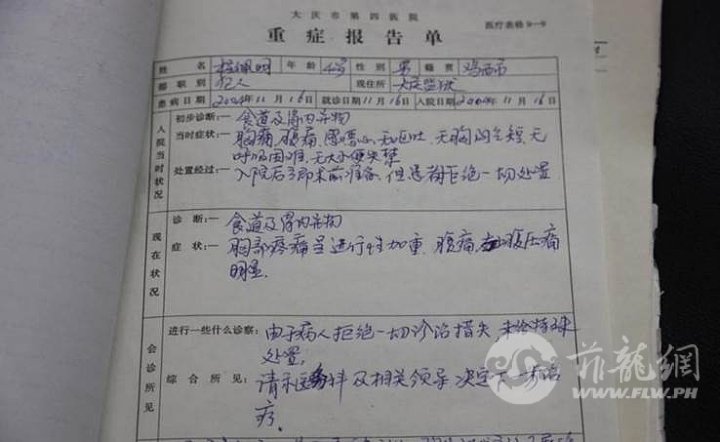 大庆市第四医院
医疗表格9-9
重症报告单
姓名 程佩明 年龄 48 性别 男 籍贯 鸡西市
部职别 犯人 现住所 大庆监狱
患病日期 2004年11月16日 就诊日期 11月16日 入院日期 2004年11月16日
入院当时状况
初步诊断:一 食道及胃内异物
当时症状:一 胸痛,腹痛,恶心,无呕吐,无胸闷气短,无
呼吸困难,无大小便失禁
处置经过:一 入院后予即术前准备,但患者拒绝一切处置
现在状况
诊断:一 食道及胃内异物
症状:一 胸部疼痛呈进行性加重,腹痛,腹压痛
明显.
会诊所见
进行一些什么诊察: 由于病人拒绝一切诊治措失 未给特殊
处置.
综合所见: 请示医务科及相关领导决定下一步治
疗.
菲龍網
WWW.FLW.PH